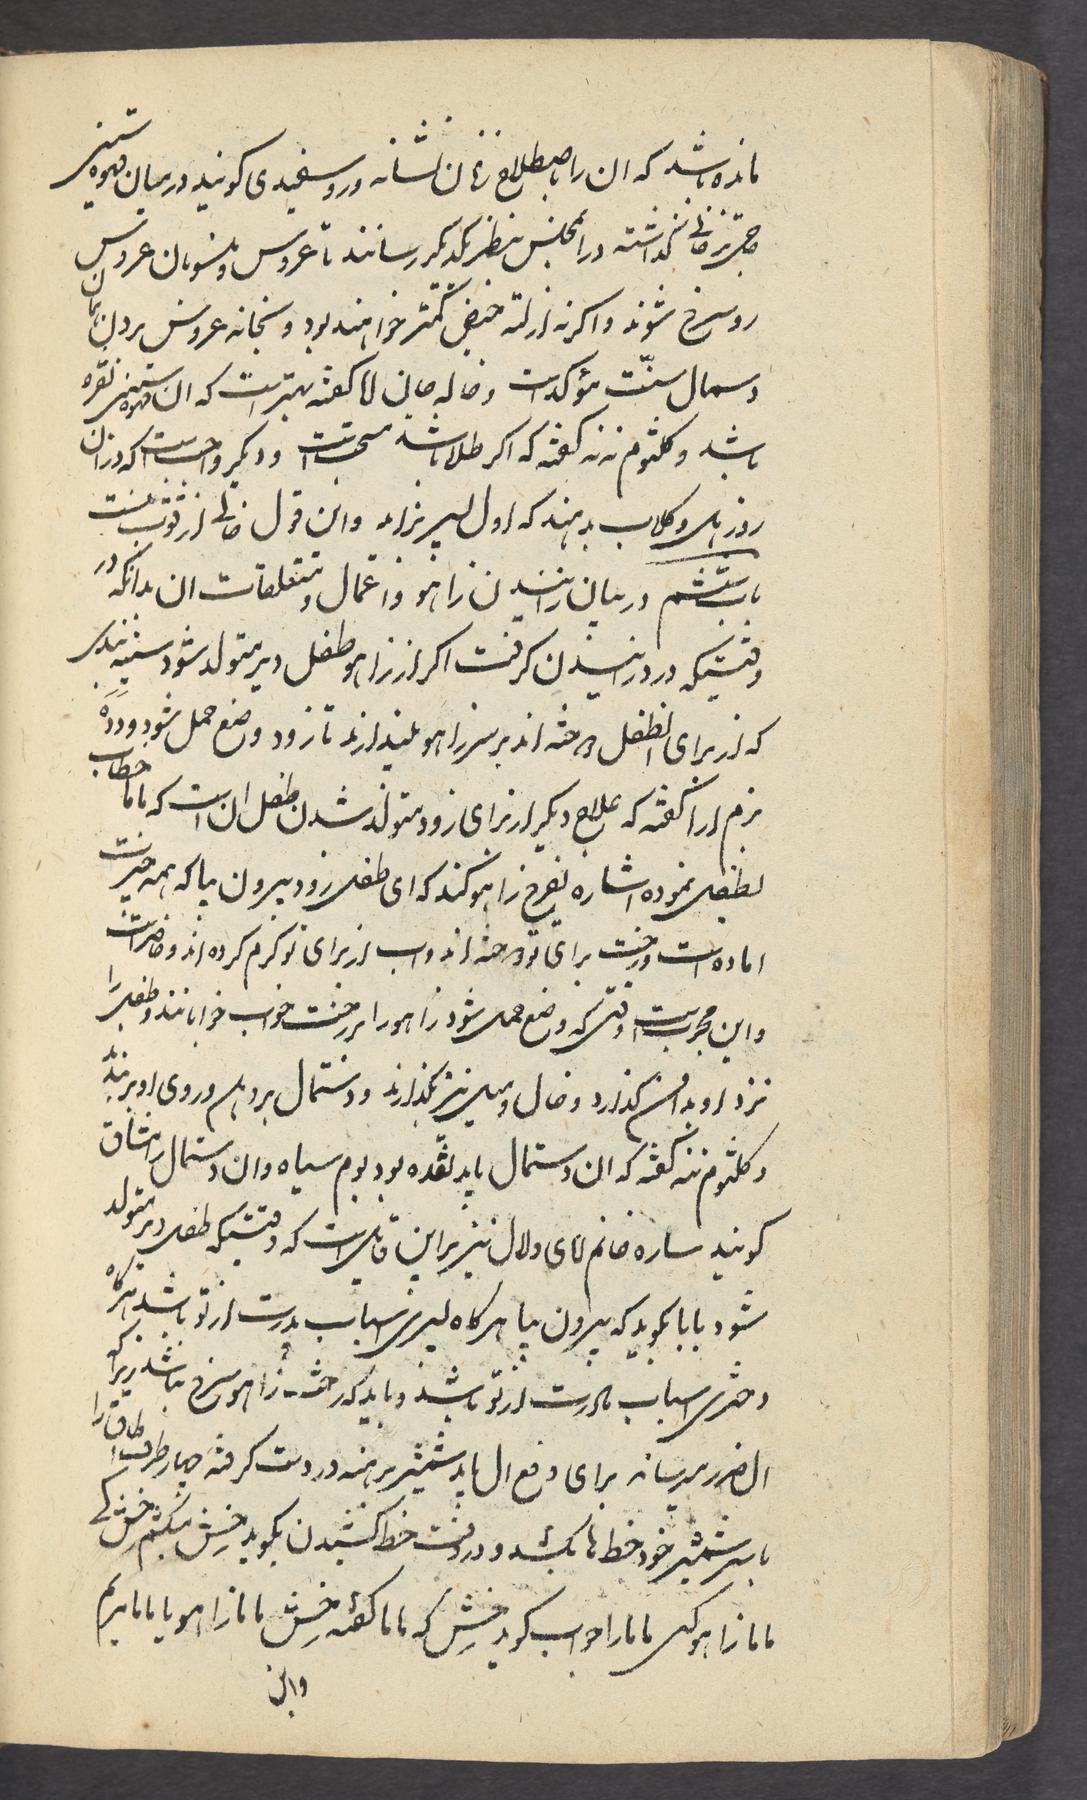 مانده باشد که ان را باصطلاح زنان نشانه و روسفیدی کویند در میان قهوه سینی
نکذاشته در انمجلس بنظر یکدیکر رسانند تا عروس و منسوبان عروس
روسرخ شوند واکرنه از لته حیض کمتر خواهند بود و بخانه عروس بردن ان
دسمال سنّت مؤکد است و خاله جان اقا کفته بهتر است که ان قهوه سینی نقره
باشد و کلثوم ننه کفته که اکر طلا باشد مستحب است و دیکر واجب است که در ان
روز هل و کلاب بدهند که اول پسر بزاید وان قول خالی از قوت نیست
باب ششم در بیان زائیدن زاهو و اعمال و متعلقات ان بدانکه در
وقتیکه درد زائیدن کرفت اکر از زاهو طفل دیر متولد شود
که از برای انطفل دوخته اند بر سر زاهو بیندازند تا زود وضع حمل شود و دده
بزم ارا کفته که علاج دیکر از برای زود متولد شدن طفل ان است که ماما خطاب
بطفل نموده اشاره بفرج زاهو کند که ای طفل زود بیرون بیا که همه چیزت
اماده است و رخت برای تو دوخته اند و اب از برای تو کرم کرده اند و حاضر است
و این مجرب است وقتی که وضع حمل شود زاهو را بر رخت خواب خوابانند و طفل را
نزد او بدامن کذارد و خال و میل نیز بکذارند و دستمال بر دهن و روی او ببندند
و کلثوم ننه کفته که ان دستمال باید نقده بود بوم سیاه و ان دستمال را
کویند ساره خانم لالای دلال نیز براین قایل است که وقتیکه طفل دیر متولد
شود بابا بکوید که بیرون بیا هرکاه پسری اسباب پدرت از تو باشد هرکاه
دختری اسباب مادرت از تو باشد و باید که رخت زاهو سرخ نباشد زیرا که
ال ضرر میرساند برای دفع ال باید شمشیر برهنه در دست کرفته چهار طرف اطاق را
با سر شمشیر خود خط ها بکشد و در وقت خط کشیدن بکوید خش میکشم خش کی
ماما زاهو کی ماما را جواب کوید خش که ماما کفته خش ماما زاهو یا ماما مریم
واین